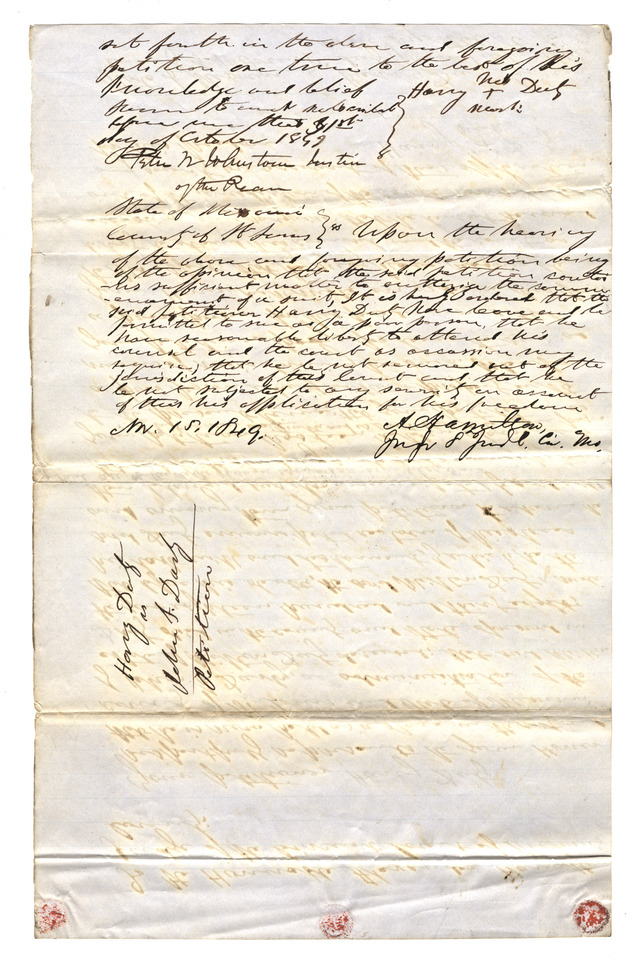 set fourth in the above and foregoing
petition are true to the best of his
Knowledge and belief } Harry his X mark Darby
Sworn to and subscribed
before me this 31st
day of October 1849
Peter W Johnstone Justice
of the Peace
State of Missouri
County of St Louis } ss Upon the hearing
of the above and foregoing petition being
of the opinion that the said petition contai
-ns sufficient matter to authorize the comm
-encement of a suit, It is hereby ordered that the
said petitioner Harry Have leave and be
permitted to sue as a poor person, that he
have reasonable liberty to attend his
counsel and the court as occassion may
require, that he be not removed out of the
Jurisdiction of this Court and that he
be not subjected to any severity on account
of this his application for his freedom
Nov. 15. 1849. A Hamilton,
Judge 8 Judl. Cir. Mo.
Harry
vs
John F. Darby
Petition